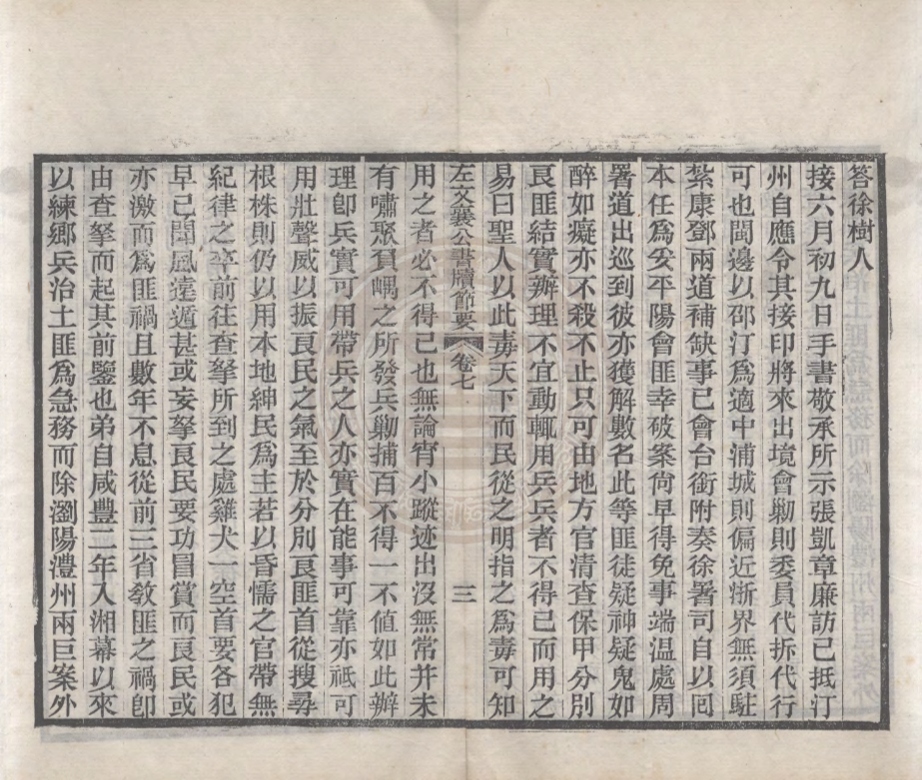 答徐樹人
接六月初九日手書敬承所示張凱章廉訪已抵汀
州自應令其接印將來出境會勦則委員代拆代行
可也閩邊以邵汀為適中浦城則偏近浙界無須駐
紥康鄧兩道補缺事已會台銜附奏徐署司自以囘
本任為妥平陽會匪幸破案尙早得免事端温處周
署道出巡到彼亦獲解數名此等匪徒疑神疑鬼如
醉如癡亦不殺不止只可由地方官清查保甲分別
良匪結實辦理不宜動輒用兵兵者不得已而用之
易曰聖人以此毒天下而民從之明指之為毒可知
左文襄公書牘節要 卷七 三
用之者必不得已也無論宵小蹤迹出沒無常并未
有嘯聚負嵎之所發兵勦捕百不得一不值如此辦
理卽兵實可用帶兵之人亦實在能事可靠亦祗可
用壯聲威以振良民之氣至於分別良匪首從搜尋
根株則仍以用本地紳民為主若以昏懦之官帶無
紀律之卒前往查拏所到之處雞犬一空首要各犯
早已聞風遠遁甚或妄拏良民要功冒賞而良民或
亦激而為匪禍且數年不息從前三省敎匪之禍卽
由查拏而起其前鑒也弟自咸豐二年入湘幕以來
以練鄉兵治土匪為急務而除瀏陽澧州兩巨案外